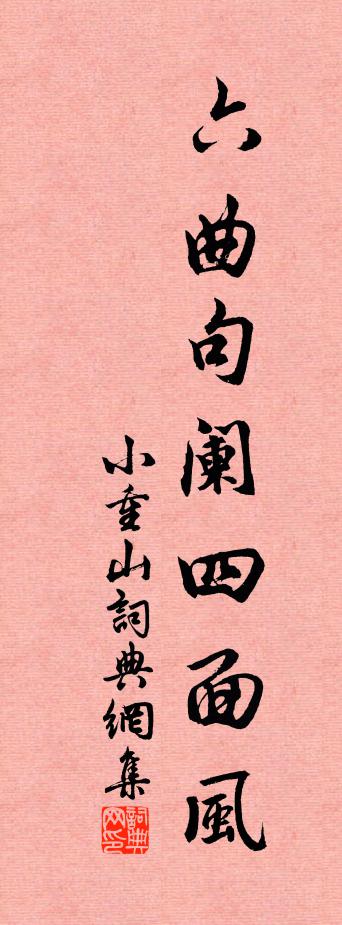 六曲句阑四面風
小重山詞典網集
詞典
网印